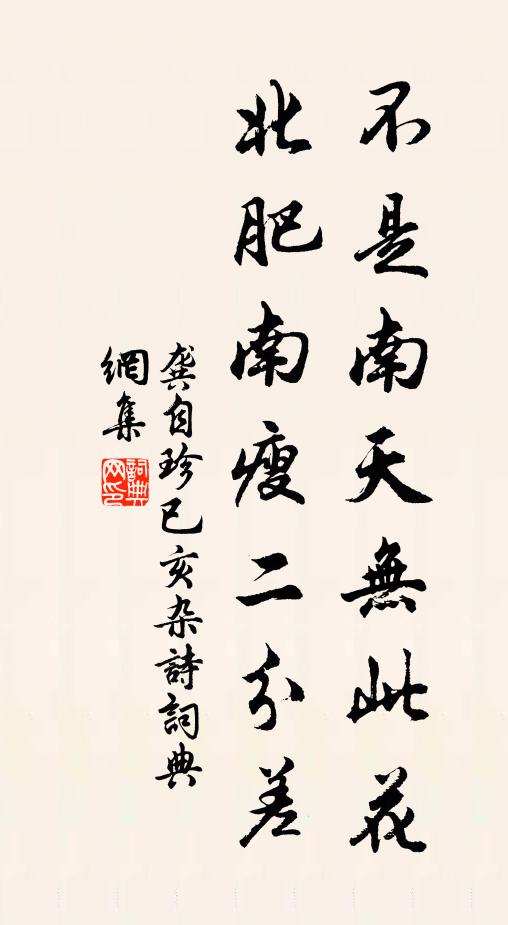 不是南天無此花
北肥南瘦二分差
龔自珍已亥杂詩詞典
網集
詞典
网印